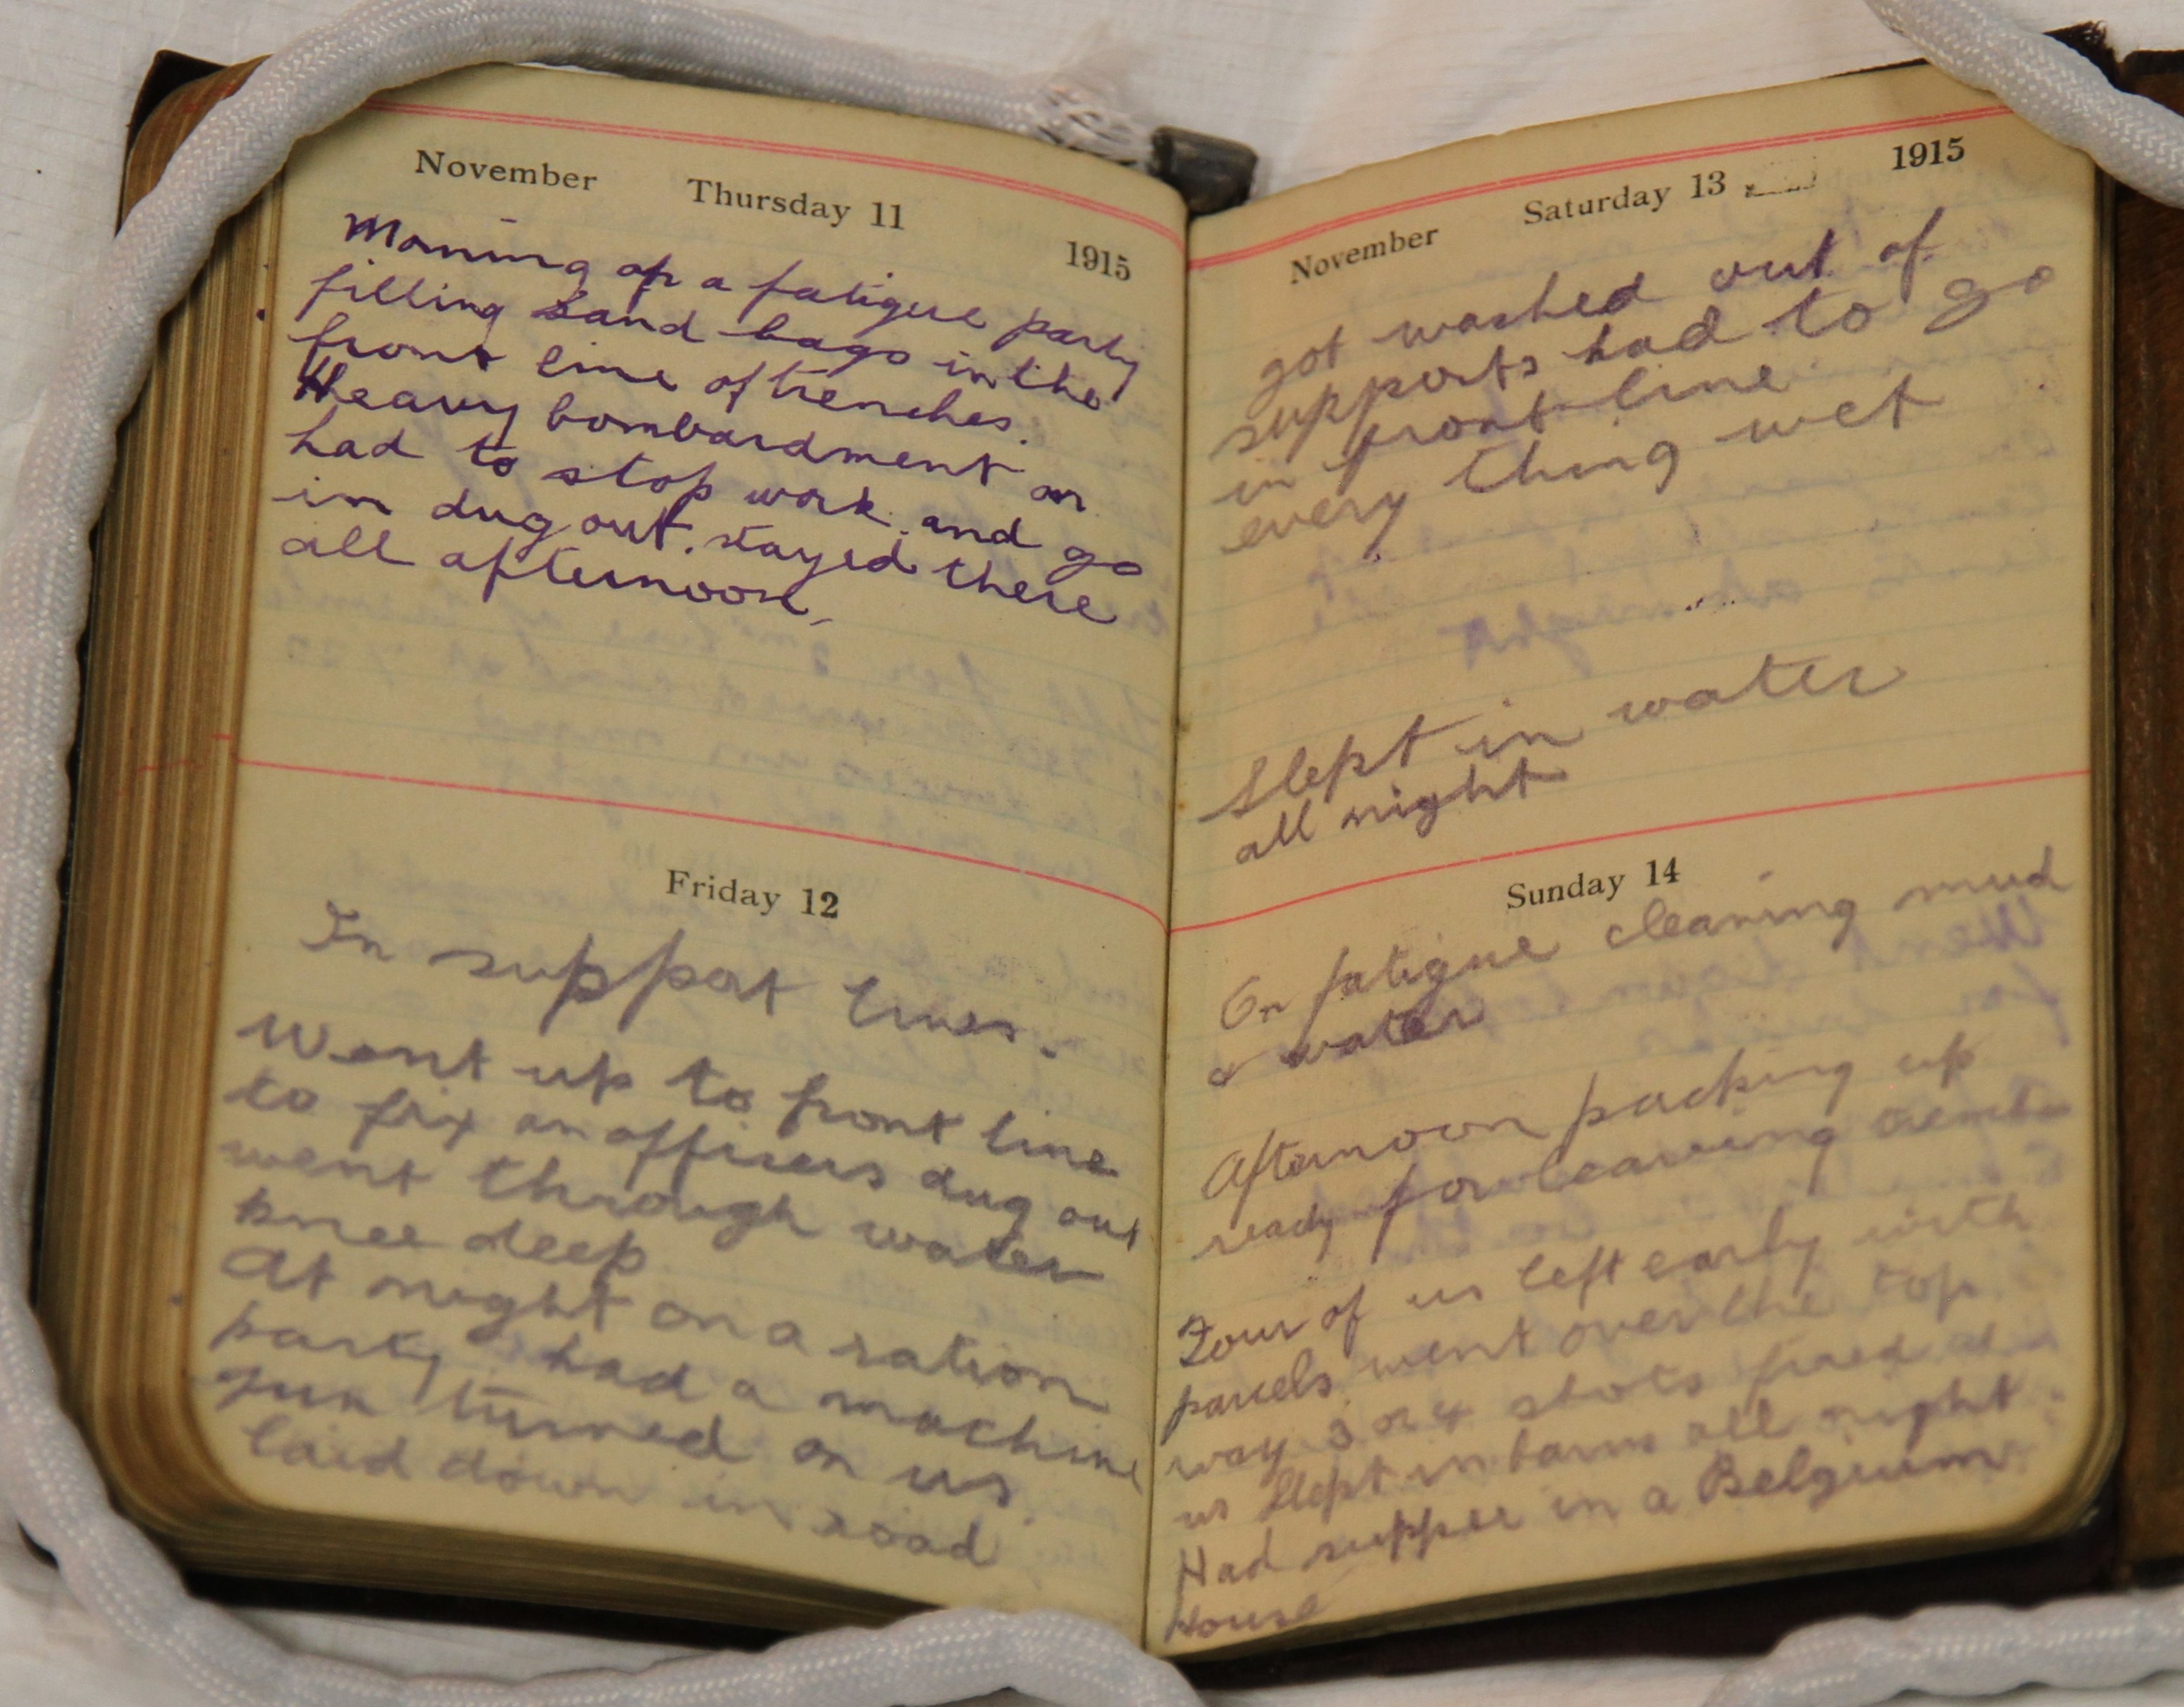 November Thursday 11 1915
Morning on a fatigue party
filling sand bags in the
front line of trenches.
Heavy bombardment on
had to stop work. and go
in dug out. stayed there
all afternoon.
Friday 12
In support lines.
Went up to front line
to fix an officers dug out
went through water
knee deep
At night on a ration
party had a machine
gun turned on us.
laid down in road
November Saturday 13 1915
got washed out of
supports had to go
in front line
every thing wet
Slept in water
all night
Sunday 14
On fatigue cleaning mud
& water
Afternoon packing up
ready for leaving
Four of us left early with
parcels went over the top
way 3 or 4 shots fired at
us Slept in barn all night
Had supper in a Belgium
House